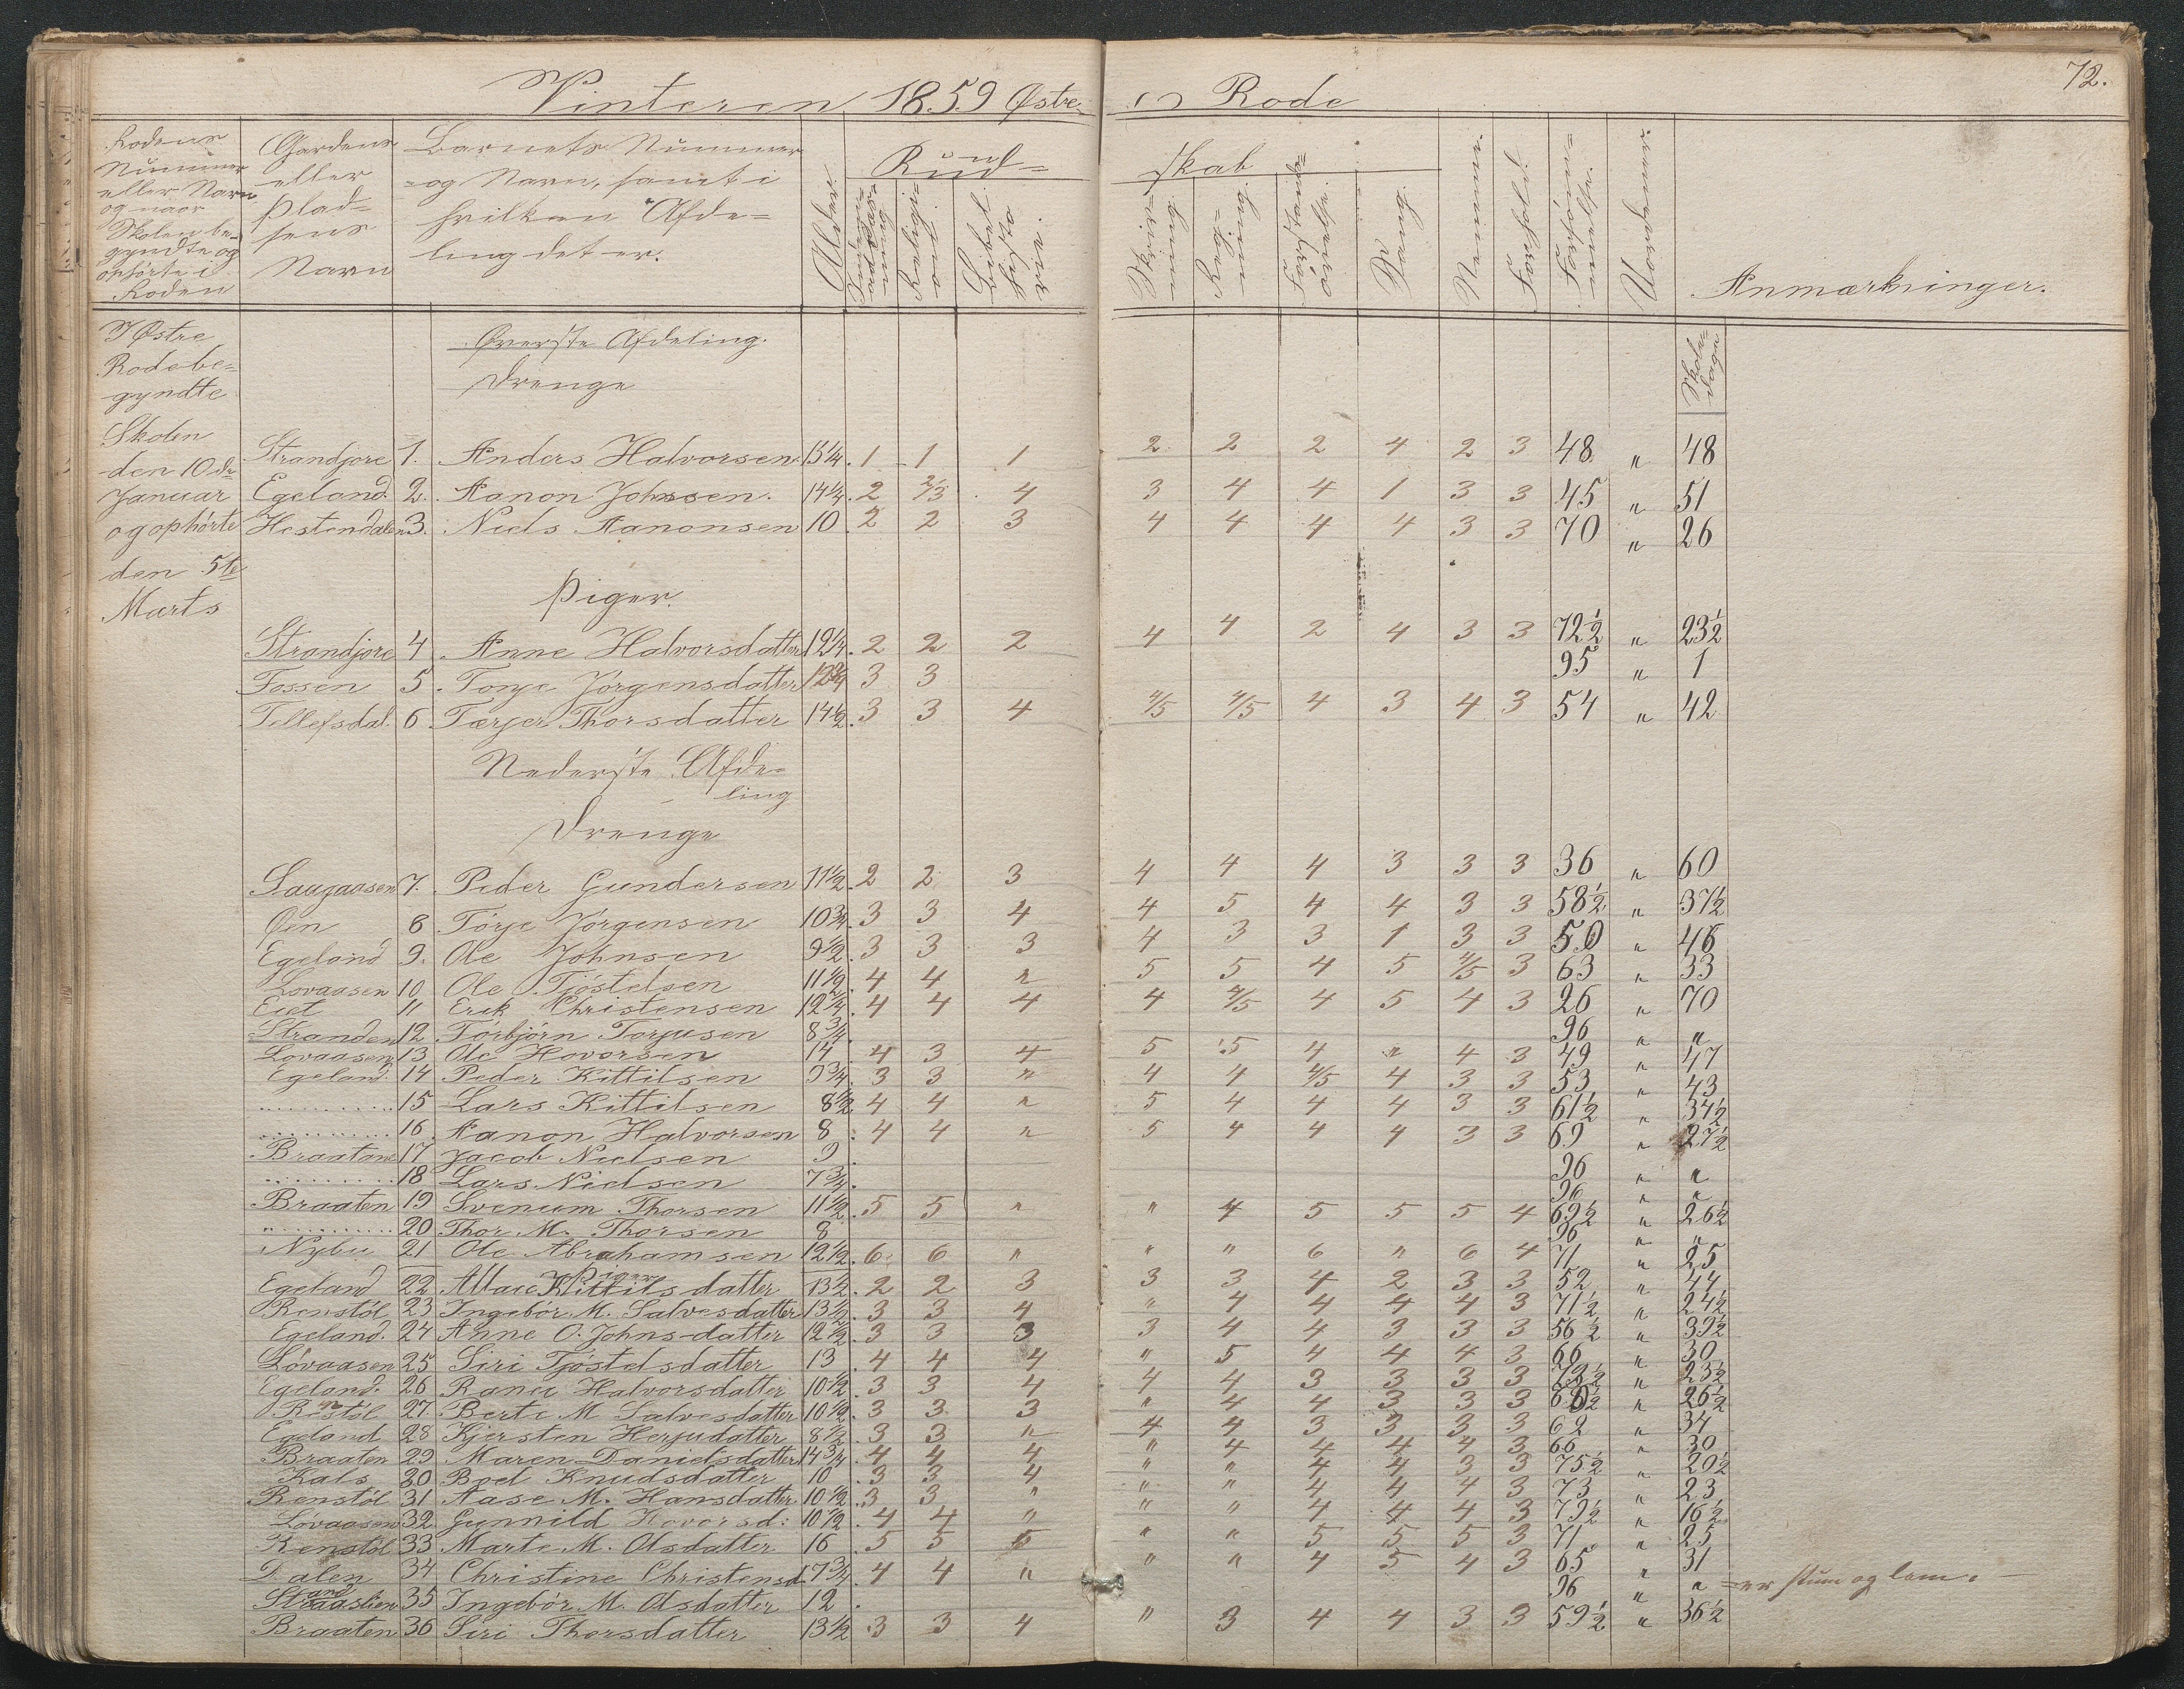 Vinteren 1859 Østre Rode
72.
Rodens Nummer eller Navn og naar Skolen begyndte og ophörte i Roden
Gaardens eller Pladsens Navn
Barnets Nummer og Navn, samt i hvilken Afdeling det er.
Alder
Kundskab
Religion
Bibelhistorie.
Skrivning
Regning
Sang
Nemme.
Forhold.
Forsömmelse.
Uordener.
Anmærkninger.
Skoledage
I Østre
Rode be-
gyndte
Skolen
den 10de
Januar
og ophörte
den 5te
Marts
Øverste Afdeling.
Drenge
Strandjore 1. Anders Halvorsen 13¼ 1 1 1 2 2 2 4 2 3 48 " 48
Egeland. 2. Aanon Johnsen. 14¼ 2 2/3 4 3 4 4 1 3 3 45 " 51
Hestendalen 3. Niels Aanonsen 10 2 2 3 4 4 4 4 3 3 70 " 26
Piger.
Strandjore 4 Anne Halvorsdatter 12¼ 2 2 2 4 4 2 4 3 3 72½ " 23½
Fossen 5 Tonje Jörgensdatter 12¾ 3 3 95 " 1
Tellefsdal. 6 Tærjer Thorsdatter 14½ 3 3 4 4/5 4/5 4 3 4 3 54 " 42
Nederste Afde-
ling
Drenge
Saugaasen 7. Peder Gundersen 11½ 2 2 3 4 4 4 3 3 3 36 " 60
Øen 8 Törje Jörgensen 10¾ 3 3 4 4 5 4 4 3 3 58½ " 37½
Egeland 9. Ole Johnsen 9½ 3 3 3 4 3 3 1 3 3 50 " 46
Lovaasen 10 Ole Tjöstelsen 11½ 4 4 " 5 5 4 5 4/5 3 63 " 33
Eiet 11 Erik Christensen 12¼ 4 4 4 4 4/5 4 5 4 3 26 " 70
Stranden 12 Törbjörn Torjusen 8¾ 96 " "
Lovaasen 13 Ole Hovorsen 14 4 3 4 5 5 4 " 4 3 49 " 47
Egeland. 14 Peder Kittilsen 9¾ 3 3 " 4 4 4/5 4 3 3 53 " 43
........... 15 Lars Kittilsen 8½ 4 4 " 5 4 4 4 3 3 61½ " 34½
........... 16 Aanon Halvorsen 8 4 4 " 5 4 4 4 3 3 69 " 27½
Braatane 17 Jacob Nielsen 9 96 " "
........... 18 Lars Nielsen 7¾ 96 " "
Braaten 19 Svenum Thorsen 11½ 5 5 " " 4 5 5 5 4 69½ " 26½
"........... 20 Thor M. Thorsen 8 96 " "
Nybu 21 Ole Abrahamsen 12½ 6 6 " " " 6 " 6 4 71 " 25
Piger
Egeland 22 Kittilsdatter 13½ 2 2 3 3 3 4 2 3 3 52 " 44
Renstöl 23 Ingebör M. Salvesdatter 13½ 3 3 4 " 4 4 4 4 3 71½ " 24½
Egeland. 24 Anne O. Johns-datter 12½ 3 3 3 3 4 4 3 3 3 56½ " 39½
Lövaasen 25 Siri Tjöstelsdatter 13 4 4 4 " 5 4 4 4 3 66 " 30
Egeland. 26 Ranei Halvorsdatter 10½ 3 3 4 4 4 3 3 3 3 " 23½
Renstöl 27. Berte M Salvesdatter 10½ 3 3 3 " 4 4 3 3 3 " 26½
Egeland 28 Kjersten Herjudatter 8½ 3 3 " 4 4 3 3 3 3 62 " 34
Braaten 29 Maren Danielsdatter 14¾ 4 4 4 " 4 4 4 4 3 66 " 30
Kals 30 Boel Knudsdatter 10 3 3 4 " " 4 4 3 3 75½ " 20½
Renstöl 31 Aase M. Hansdatter 10½ 3 3 " " " 4 4 4 3 73 " 23
Lövaasen 32. Gunnild Hovorsd: 10½ 4 4 " " " 4 4 4 3 79½ " 16½
Renstöl 33 Marte M. Olsdatter 16 5 5 5 " " 5 5 5 3 71 " 25
Dalen 34 Christine Christensd. 17¾ 4 4 " " " 4 5 4 3 65 " 31
35 Ingebör M. Olsdatter 12 96 " " er stum og lam.
Braaten 36 Siri Thorsdatter 13½ 3 3 4 " 3 4 4 3 3 59½ " 36½